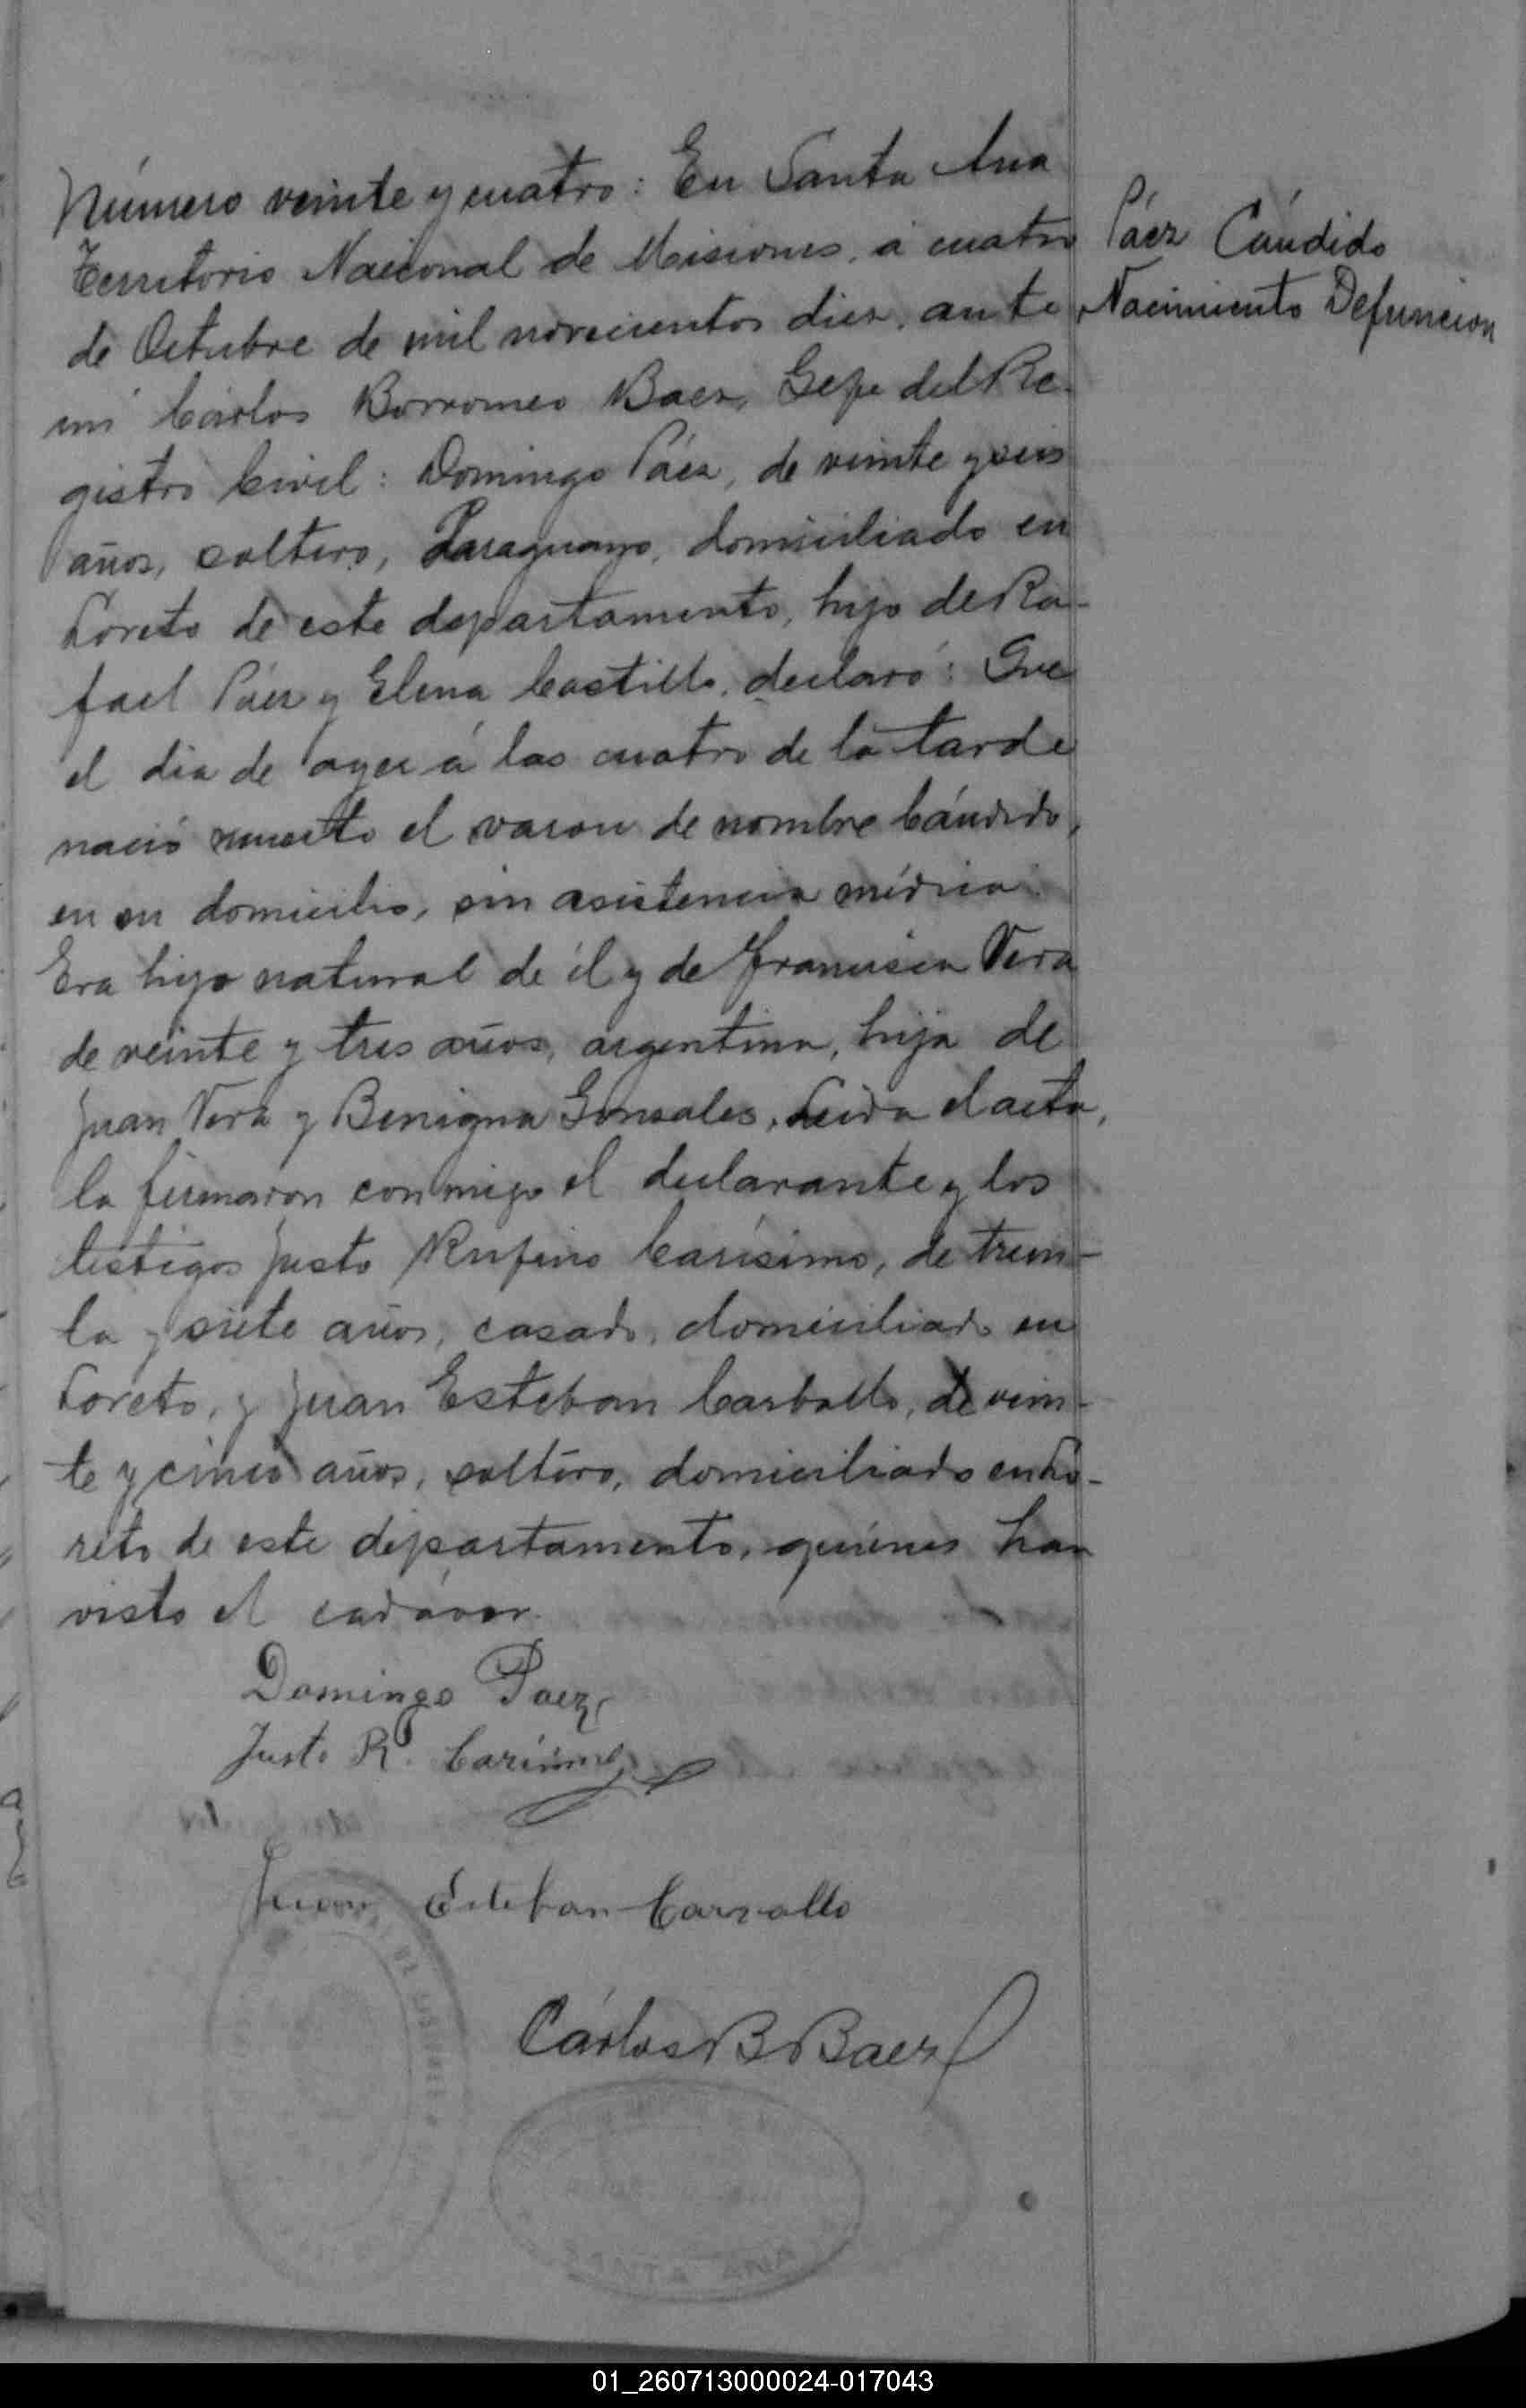 Número veinte y cuatro: En Santa Ana
Territorio Nacional de Misiones, á cuatro
de Octubre de mil novecientos diez, ante
mi Cárlos Borromeo Baez, Gefe del Re-
gistro Civil: Domingo Páez, de veinte y seis
años, soltero, Paraguayo, domiciliado en
Loreto de este departamento, hijo de Ra-
fael Páez y Elena Castillo, declaró: Que
el dia de ayer á las cuatro de la tarde
nació muerto el varon de nombre Cándido,
en su domicilio, sin asistencia médica.
Era hijo natural de él y de Francisca Vera
de veinte y tres años, argentina, hija de
Juan Vera y Benigna Gonzales. Leida el acta,
la firmaron conmigo el declarante y los
testigos Justo Rufino Carísimo, de trein-
ta y siete años, casado, domiciliado en
Loreto, y Juan Esteban Carballo, de vein-
te y cinco años, soltero, domiciliado en Lo-
reto de este departamento, quiénes han
visto el cadáver.
Páez Cándido
Nacimiento Defuncion
Domingo Paez
Justo R. Carísimo
Juan Esteban Carvallo
Cárlos B Baez
SANTA ANA
01_260713000024-017043